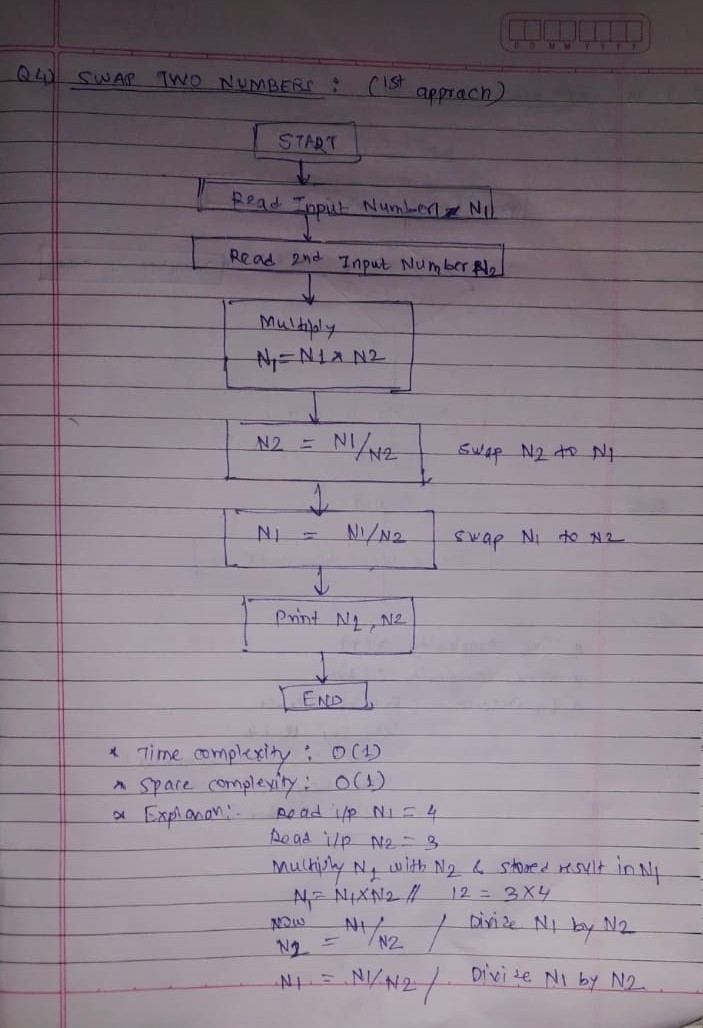 D D M M Y Y Y Y
Q4) SWAP TWO NUMBERS : (1st apprach)
START
Read Input Number N1
Read 2nd Input Number N2
Multiply
N1 = N1 * N2
N2 = N1/N2 swap N2 to N1
N1 = N1/N2 swap N1 to N2
Print N1, N2
END
* Time complexity : O(1)
* Space complexity : O(1)
* Explanan:- Read i/p N1 = 4
Read i/p N2 = 3
Multiply N1 with N2 & stored result in N1
N1 = N1XN2 // 12 = 3X4
Now
N2 = N1/N2 / Divide N1 by N2
N1 = N1/N2 / Divide N1 by N2